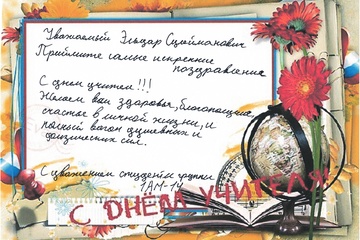 Уважаемый Эльдар Сулейманович
Приймите самые искренние
поздравления
С днем учителя!!!
Желаем вам здоровья, благополучия,
счастье в личной жизни, и
полный вагон душевных и
физических сил.
С уважением студенты группы
1АМ-14
С ДНЕМ УЧИТЕЛЯ!